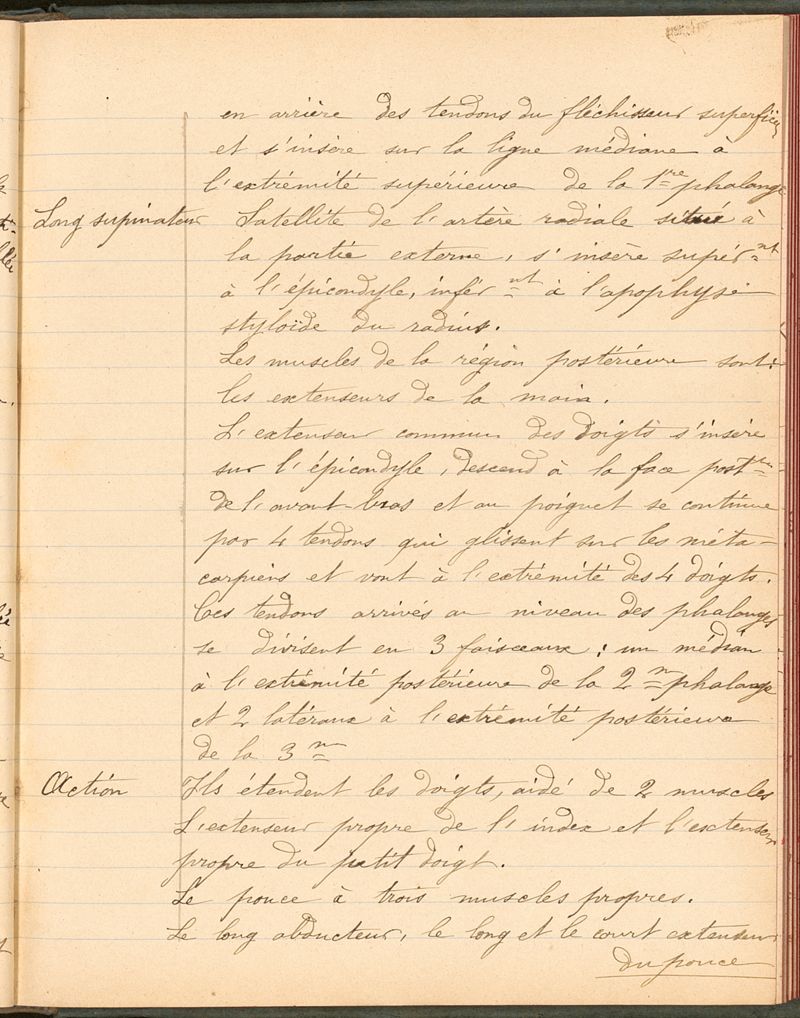 en arrière des tendons du fléchisseur superficiel
et s'insère sur la ligne médiane à
l'extrémité supérieure de la 1re phalange
Long supinateur Satellite de l'artère radiale situé à
la partie externe, s'insère supérnt
à l'épicondyle, inférnt à l'apophyse
styloïde du radius.
Les muscles de la région postérieure sont:
les extenseurs de la main.
L'extenseur commun des doigts s'insère
sur l'épicondyle, descend à la face postre
de l'avant-bras et au poignet se continue
par 4 tendons qui glissent sur les méta-
carpiens et vont à l'extrémité des 4 doigts.
Ces tendons arrivés au niveau des phalanges
se divisent en 3 faisceaux; un médian
à l'extrémité postérieure de la 2me phalange
et 2 latéraux à l'extrémité postérieure
de la 3me
Action Ils étendent les doigts, aidé de 2 muscles
L'extenseur propre de l'index et l'extenseur
propre du petit doigt.
Le pouce à trois muscles propres.
Le long abducteur, le long et le court extenseur
du pouce